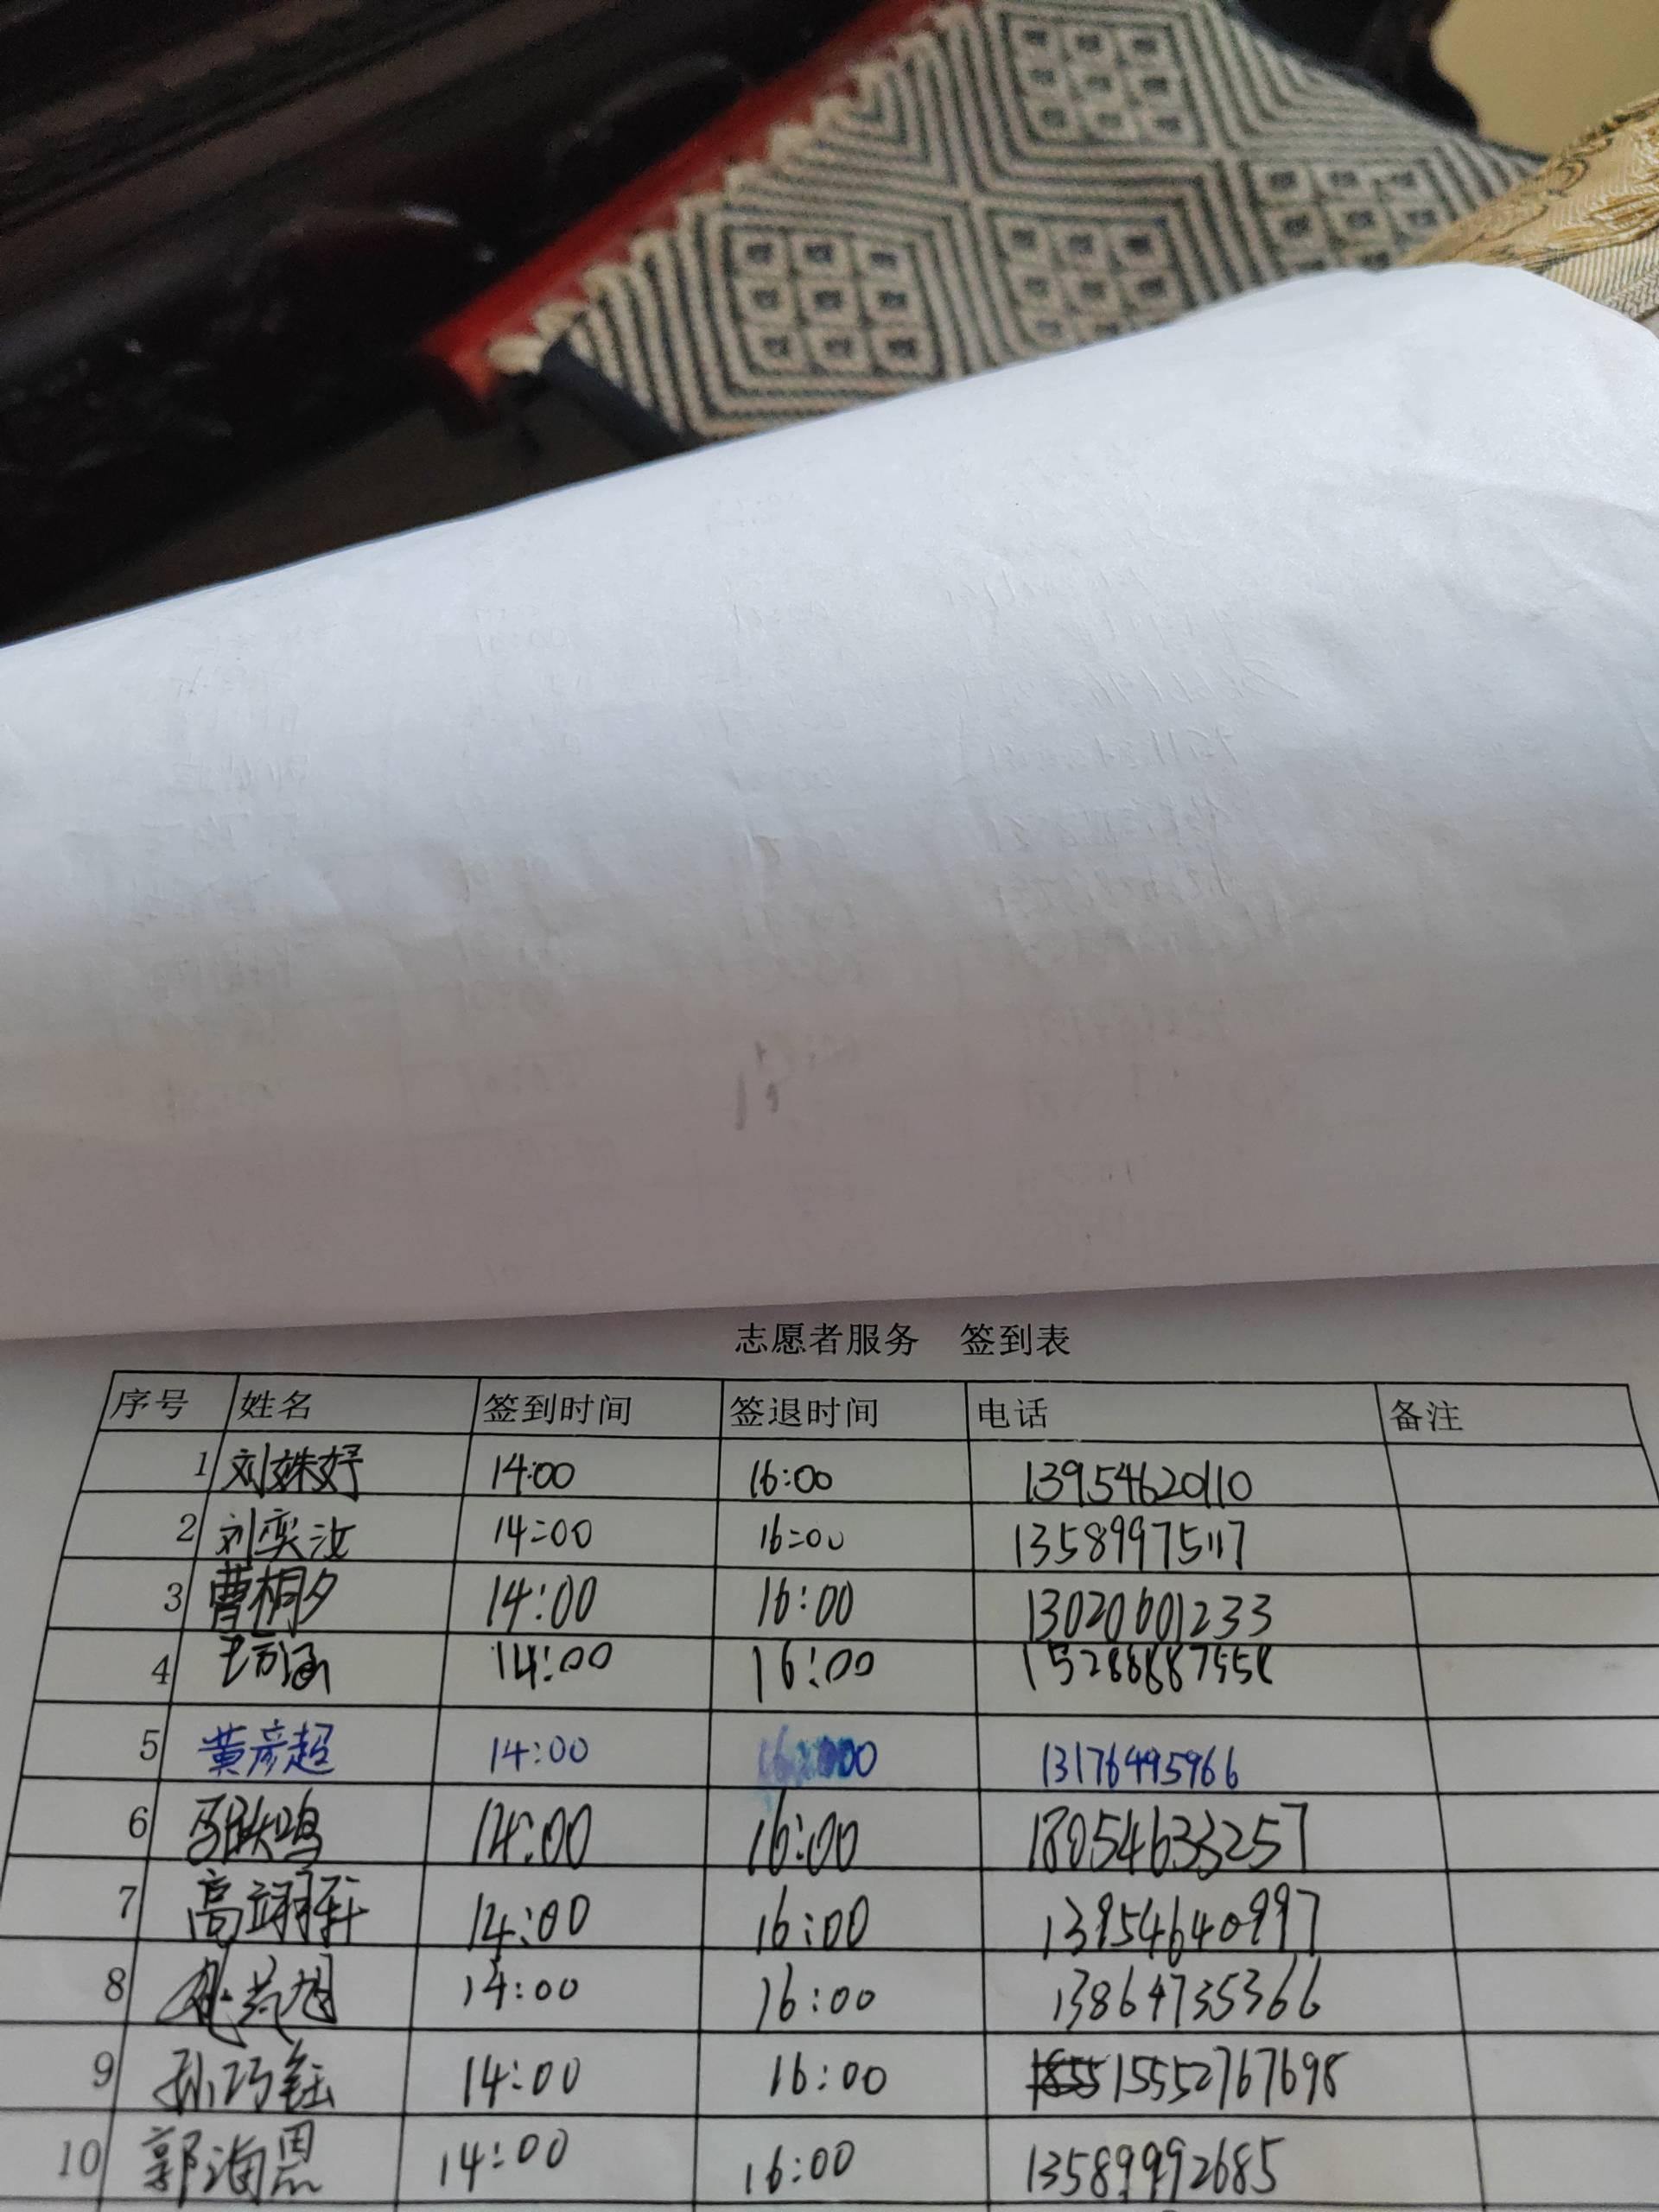 志愿者服务 签到表
序号 姓名 签到时间 签退时间 电话 备注
1 刘姝妤 14:00 16:00 13954620110
2 刘奕汝 14:00 16:00 13589975117
3 曹桐夕 14:00 16:00 13020601233
4 14:00 16:00
5 黄彦超 14:00 16:00 13176495966
6 14:00 16:00 18054633257
7 高翊轩 14:00 16:00 13954640997
8 14:00 16:00 13864735366
9 孙巧钰 14:00 16:00 15552767698
10 郭海恩 14:00 16:00 13589992685